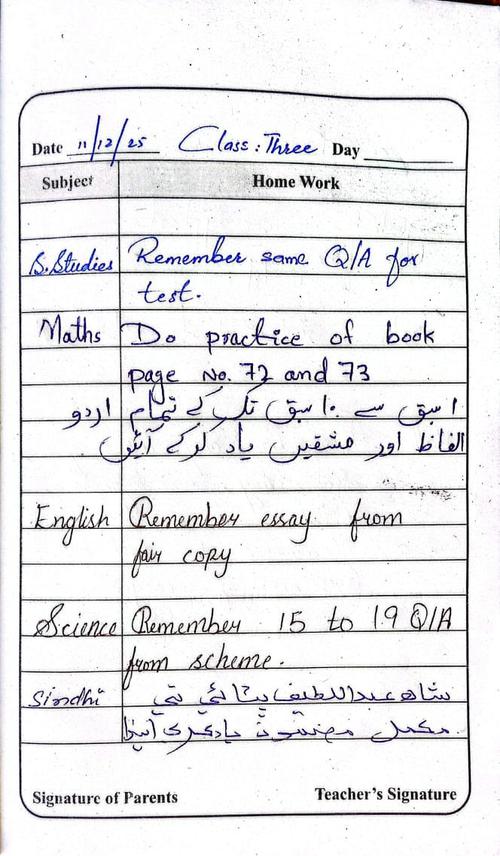 Date 11/12/25 Class: Three Day
Subject Home Work
S. Studies Remember same Q/A for
test.
Maths Do practice of book
page No. 72 and 73
اردو ۱ سبق سے ۱۰ سبق تک کے تمام
الفاظ اور مشقیں یاد کرکے آئیں
English Remember essay from
fair copy
Science Remember 15 to 19 Q/A
from scheme.
Sindhi شاھ عبداللطيف ڀٽائي تي
مڪمل مضمون ياد ڪري اچڻا
Signature of Parents Teacher's Signature